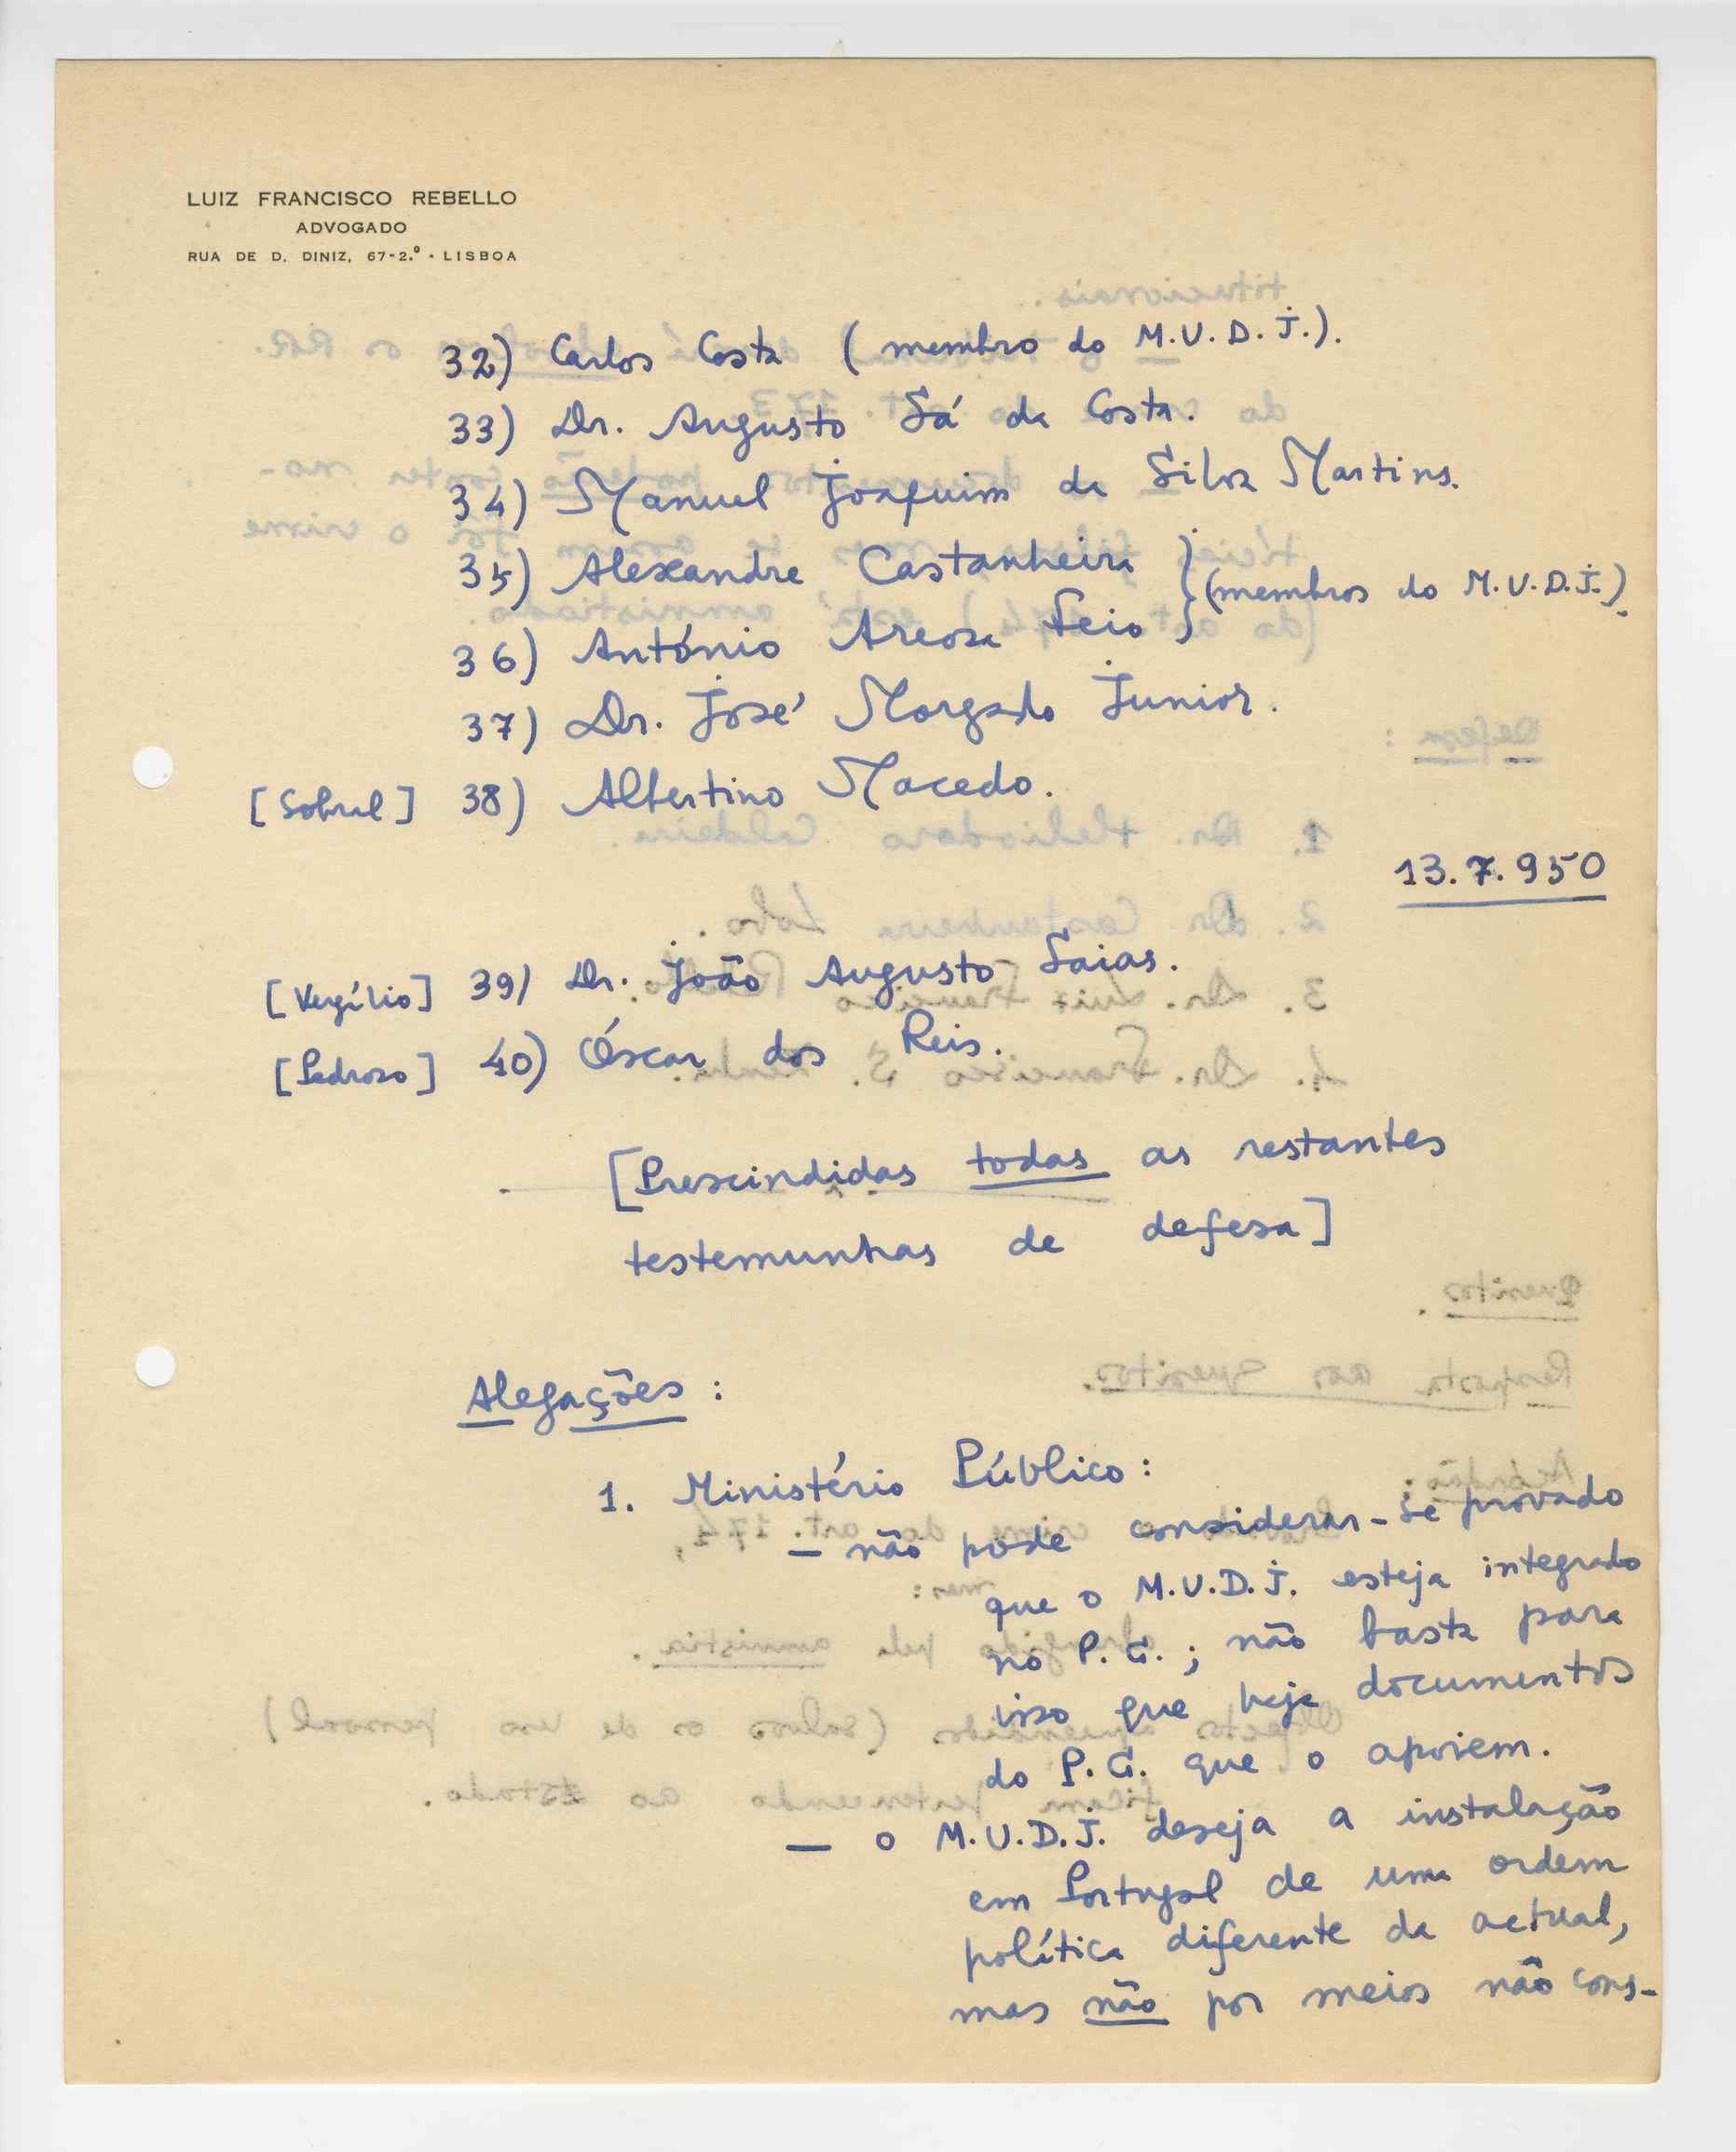 LUIZ FRANCISCO REBELLO
ADVOGADO
RUA DE D. DINIZ, 67-2.º - LISBOA
32) Carlos Costa (membro do M.U.D.J.).
33) Dr. Augusto Sá da Costa.
34) Manuel Joaquim da Silva Martins.
35) Alexandre Castanheira } (membros do M.U.D.J.).
36) António Areosa Feio }
37) Dr. José Morgado Junior.
[Sobral] 38) Albertino Macedo.
13.7.950
[Vergílio] 39) Dr. João Augusto Saias.
[Pedroso] 40) Óscar dos Reis.
[Prescindidas todas as restantes
testemunhas de defesa]
Alegações :
1. Ministério Público :
— não pode considerar-se provado
que o M.U.D.J. esteja integrado
no P.C. ; não basta para
isso que haja documentos
do P.C. que o apoiem.
— o M.U.D.J. deseja a instalação
em Portugal de uma ordem
política diferente da actual,
mas não por meios não cons-